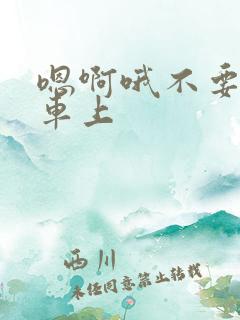 嗯啊哦不要
车上
西川
未经同意禁止转载